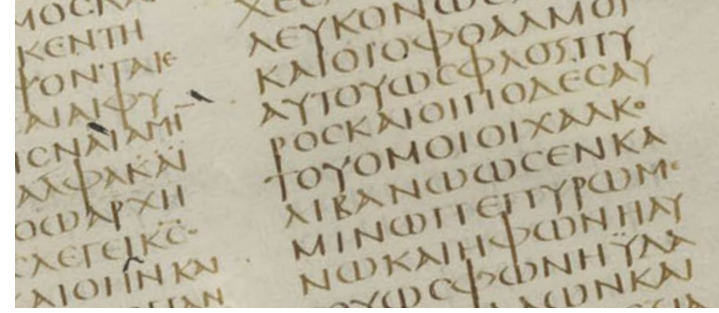 ΚΕΝΤΗ
ΨΟΝΤΑΙΕ
ΑΙΑΙΦΥ
ΙCΝΑΙΑΜΗ
ΑΛΦΑΚΑΪ
ΟΩΑΡΧΗ
ΛΕΓΕΙΚC
ΑΙΟΗΝΚΑΙ
ΛΕΥΚΟΝΩC
ΚΑΙΟΙΟΦΘΑΛΜΟΙ
ΑΥΤΟΥΩCΦΛΟΞΠΥ
ΡΟCΚΑΙΟΙΠΟΔΕCΑΥ
ΤΟΥΟΜΟΙΟΙΧΑΛΚΟ
ΛΙΒΑΝΩΩCΕΝΚΑ
ΜΙΝΩΠΕΠΥΡΩΜΕ
ΝΩΚΑΙΗΦΩΝΗΑΥ
ΤΟΥΩCΦΩΝΗΫΔΑ
ΛΩΝΚΑΙ